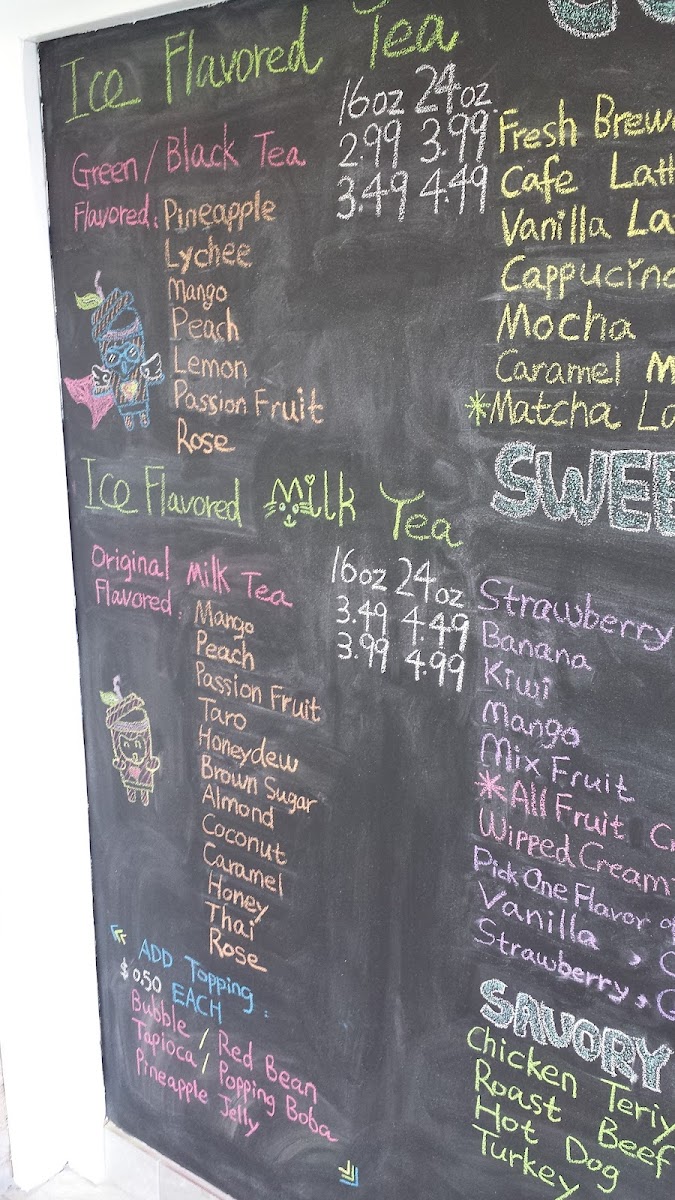 Ice Flavored Tea
16oz 24oz.
Green/Black Tea 2.99 3.99
Flavored: Pineapple 3.49 4.49
Lychee
Mango
Peach
Lemon
Passion Fruit
Rose
Ice Flavored Milk Tea
16oz 24oz
Original Milk Tea 3.49 4.49
Flavored: Mango 3.99 4.99
Peach
Passion Fruit
Taro
Honeydew
Brown Sugar
Almond
Coconut
Caramel
Honey
Thai
Rose
ADD Topping:
$0.50 EACH
Bubble / Red Bean
Tapioca / Popping Boba
Pineapple Jelly
Fresh Brew
Cafe
Vanilla
Cappucin
Mocha
Caramel M
*Matcha
SWEE
Strawberry
Banana
Kiwi
Mango
Mix Fruit
*All Fruit
Wipped Cream
Pick One Flavor
Vanilla ,
Strawberry,
SAVORY
Chicken Teriy
Roast Beef
Hot Dog
Turkey